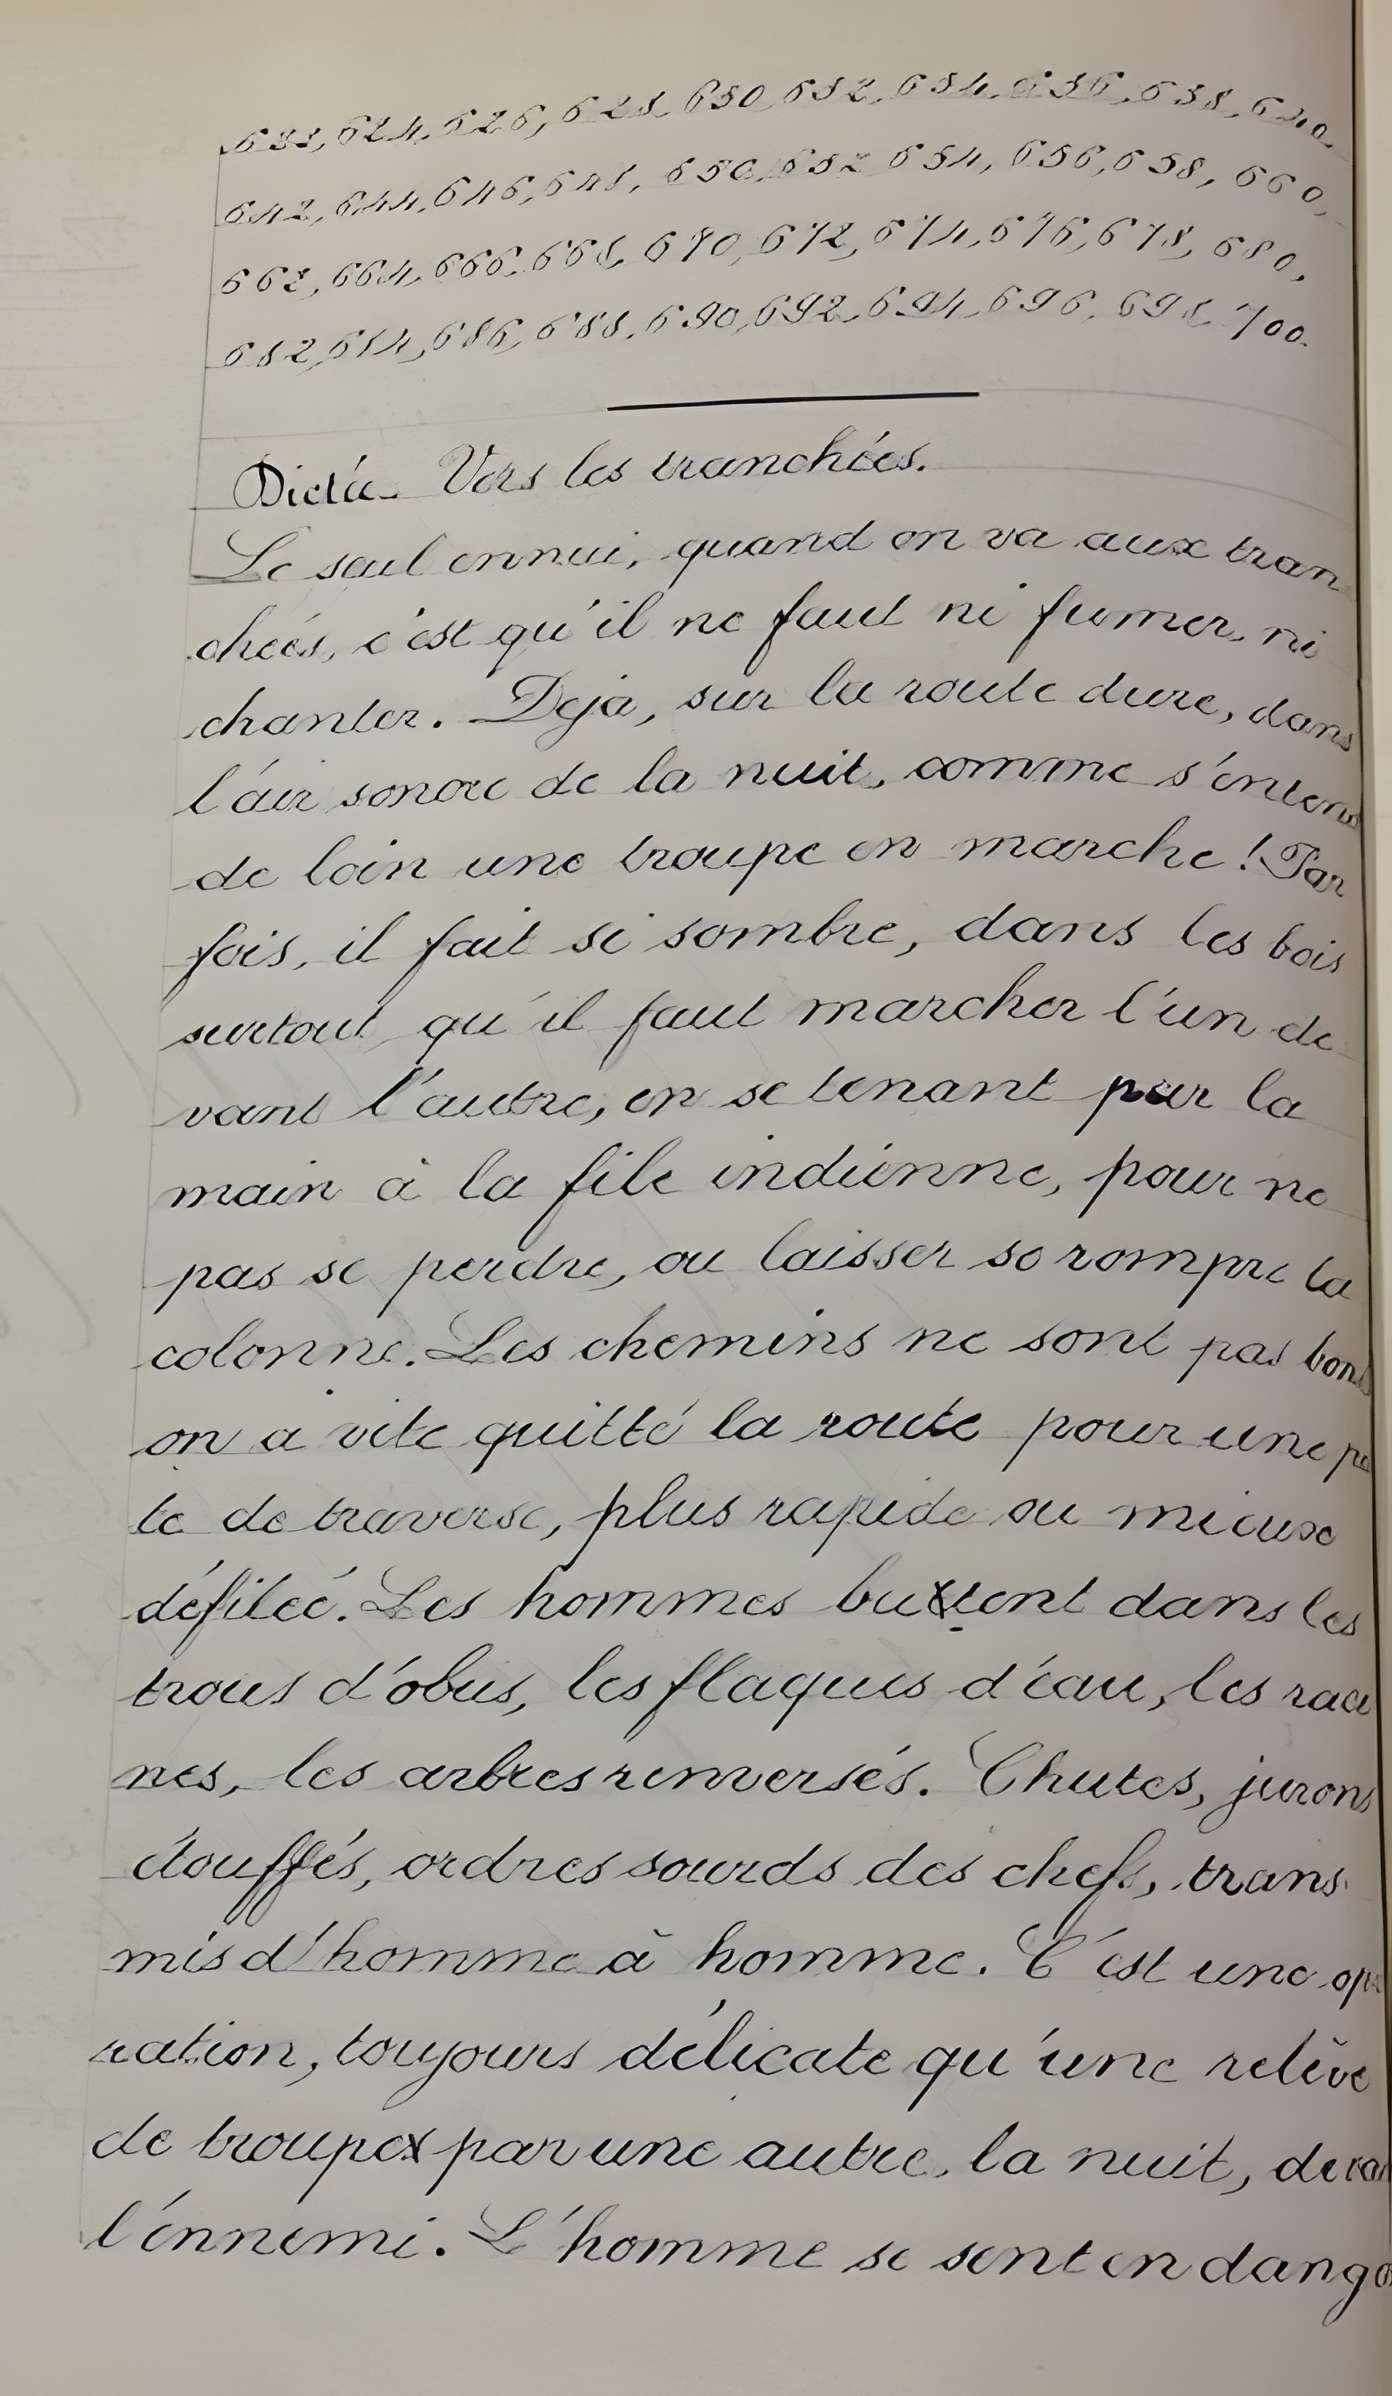 622, 624, 626, 628, 630, 632, 634, 636, 638, 640.
642, 644, 646, 648, 650, 652, 654, 656, 658, 660,
662, 664, 666, 668, 670, 672, 674, 676, 678, 680,
682, 684, 686, 688, 690, 692, 694, 696, 698, 700.
Dictée. Vers les tranchées.
Le seul ennui, quand on va aux tran
chées, c'est qu'il ne faut ni fumer, ni
chanter. Déjà, sur la route dure, dans
l'air sonore de la nuit, comme s'entend
de loin une troupe en marche ! Par
fois, il fait si sombre, dans les bois
surtout, qu'il faut marcher l'un de
vant l'autre, en se tenant par la
main à la file indienne, pour ne
pas se perdre, ou laisser se rompre la
colonne. Les chemins ne sont pas bons
on a vite quitté la route pour une pis
te de traverse, plus rapide ou mieux
défilée. Les hommes butent dans les
trous d'obus, les flaques d'eau, les raci
nes, les arbres renversés. Chutes, jurons
étouffés, ordres sourds des chefs, trans
mis d'homme à homme. C'est une opé
ration, toujours délicate qu'une relève
de troupe par une autre, la nuit, devant
l'ennemi. L'homme se sent en danger